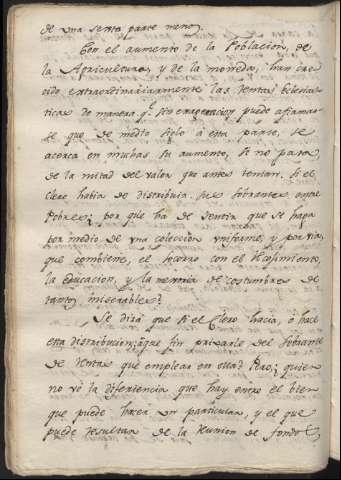 de una sexta parte menos.
Con el aumento de la Poblacion, de
la Agricultura, y de la moneda, han cre
cido extraordinariamente las rentas Eclesias
ticas de manera q.e sin exageracion puede afirmar
se que de medio siglo à esta parte, se
acerca en muchas su aumento, si no pasa,
de la mitad del valor que antes tenian. Si el
Clero habia de distribuir sus sobrantes entre
Pobres; por que ha de sentir que se haga
por medio de una coleccion uniforme, y
que combiene, el socorro con el recogimiento,
la educacion, y la mejoria de costumbres de
tantos miserables?
Se dirà que si el Clero hacia, ò hace
esta distribucion; àque fin privarle del sobrante
de rentas que emplear en ella? Pero; quien
no vè la diferiencia que hay entre el bien
que puede hacer un particular, y el que
puede resultar de la reunion de fondos,